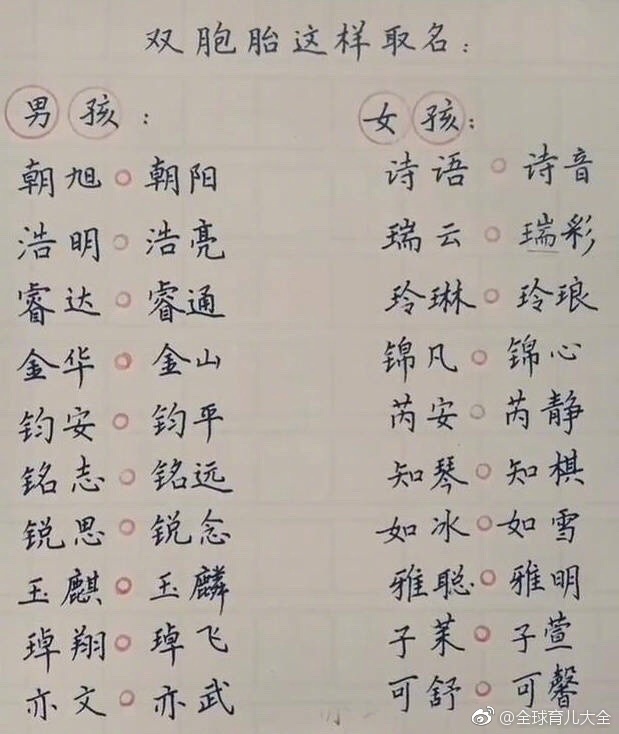 双胞胎这样取名：
男孩：
朝旭。朝阳
浩明。浩亮
睿达。睿通
金华。金山
钧安。钧平
铭志。铭远
锐思。锐念
玉麒。玉麟
琸翔。琸飞
亦文。亦武
女孩：
诗语。诗音
瑞云。瑞彩
玲琳。玲琅
锦凡。锦心
芮安。芮静
知琴。知棋
如冰。如雪
雅聪。雅明
子茉。子萱
可舒。可馨
@全球育儿大全